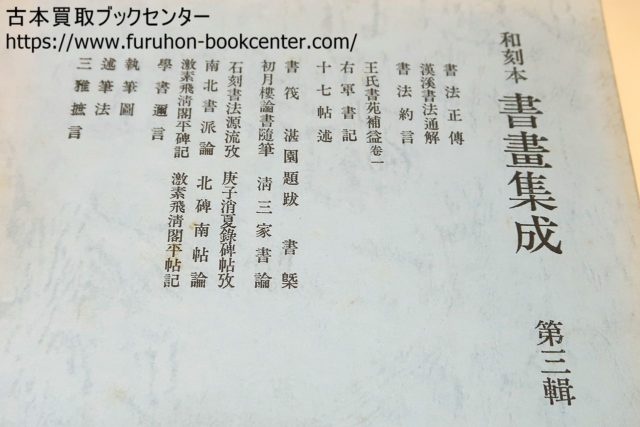 古本買取ブックセンター
https://www.furuhon-bookcenter.com/
和刻本 書畫集成 第三輯
書法正傳
漢溪書法通解
書法約言
王氏書苑補益卷一
右軍書記
十七帖述
書筏 湛園題跋 書槩
初月樓論書隨筆 淸三家書論
石刻書法源流攷 庚子消夏錄碑帖攷
南北書派論 北碑南帖論
激素飛淸閣平碑記 激素飛淸閣平帖記
學書邇言
執筆圖
述筆法
三雅摭言